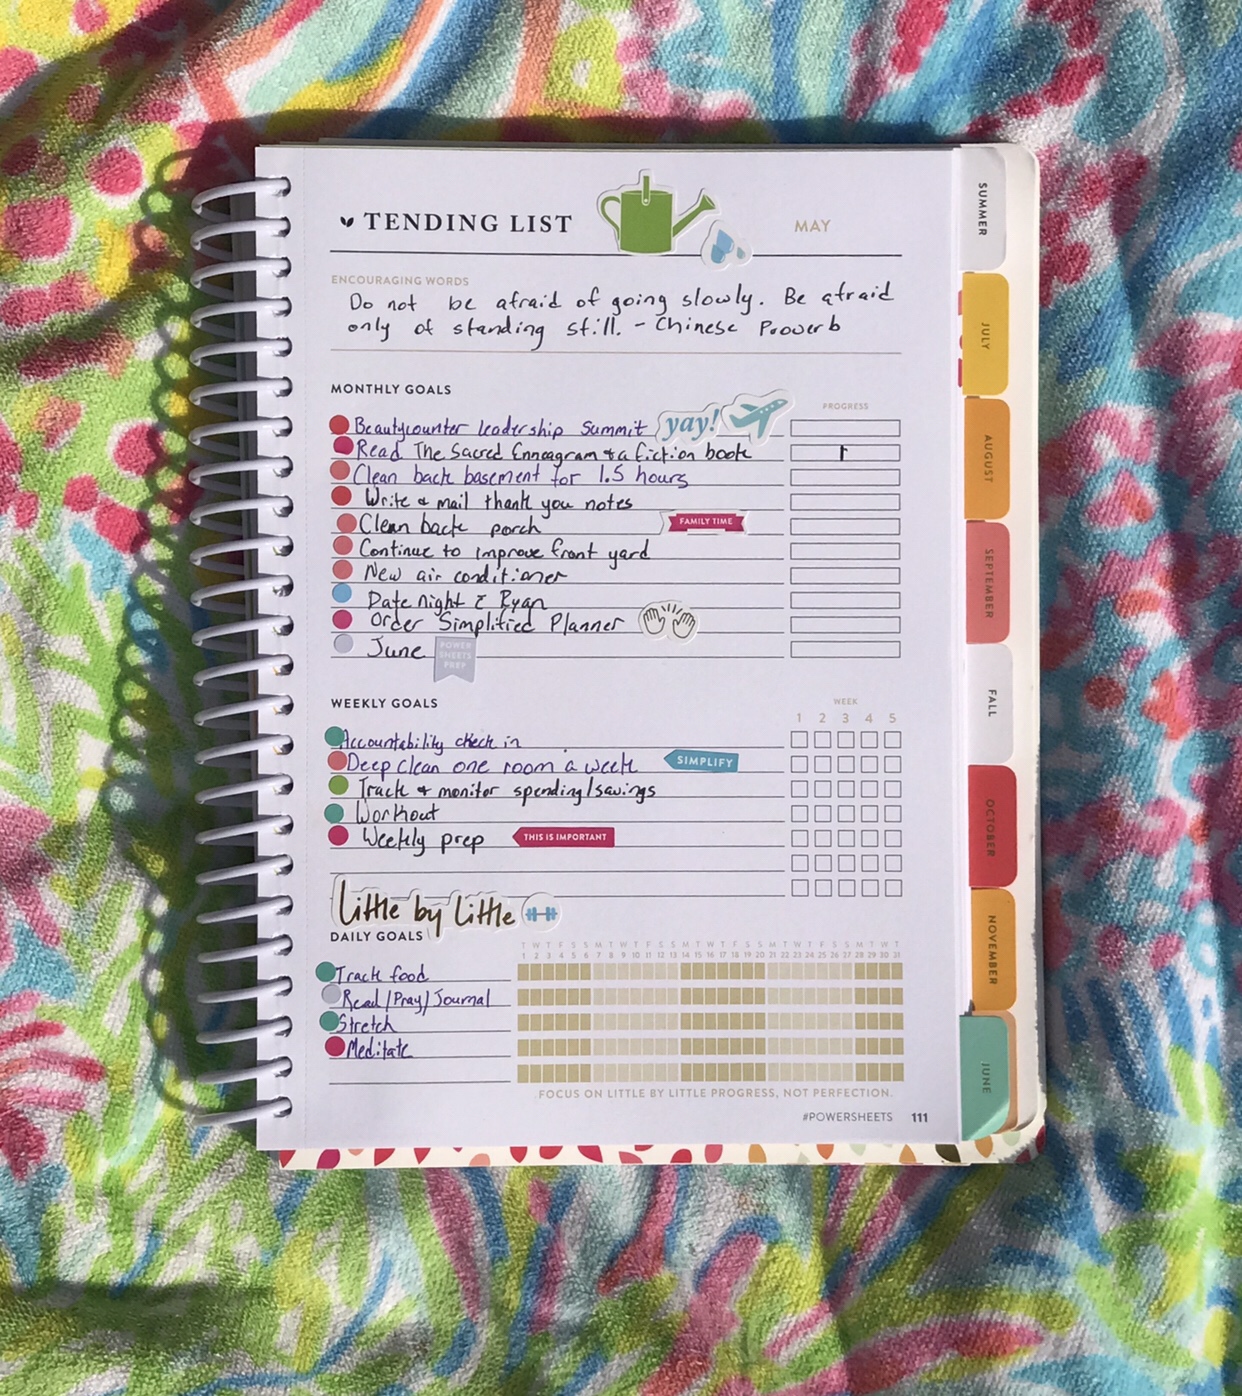 TENDING LIST
MAY
ENCOURAGING WORDS
Do not be afraid of going slowly. Be afraid
only of standing still. - Chinese Proverb
MONTHLY GOALS
PROGRESS
Beautycounter leadership Summit yay!
Read The Sacred Enneagram + a fiction book
Clean back basement for 1.5 hours
Write & mail thank you notes
Clean back porch FAMILY TIME
Continue to improve front yard
New air conditioner
Date night c Ryan
Order Simplified Planner
June POWER SHEETS PREP
WEEKLY GOALS
WEEK
1 2 3 4 5
Accountability check in
Deep clean one room a week SIMPLIFY
Track & monitor spending/savings
Workout
Weekly prep THIS IS IMPORTANT
Little by Little
DAILY GOALS
T W T F S S M T W T F S S M T W T F S S M T W T F S S M T W T
1 2 3 4 5 6 7 8 9 10 11 12 13 14 15 16 17 18 19 20 21 22 23 24 25 26 27 28 29 30 31
Track food
Read/Pray/Journal
Stretch
Meditate
FOCUS ON LITTLE BY LITTLE PROGRESS, NOT PERFECTION.
#POWERSHEETS 111
SUMMER
JULY
AUGUST
SEPTEMBER
FALL
OCTOBER
NOVEMBER
JUNE